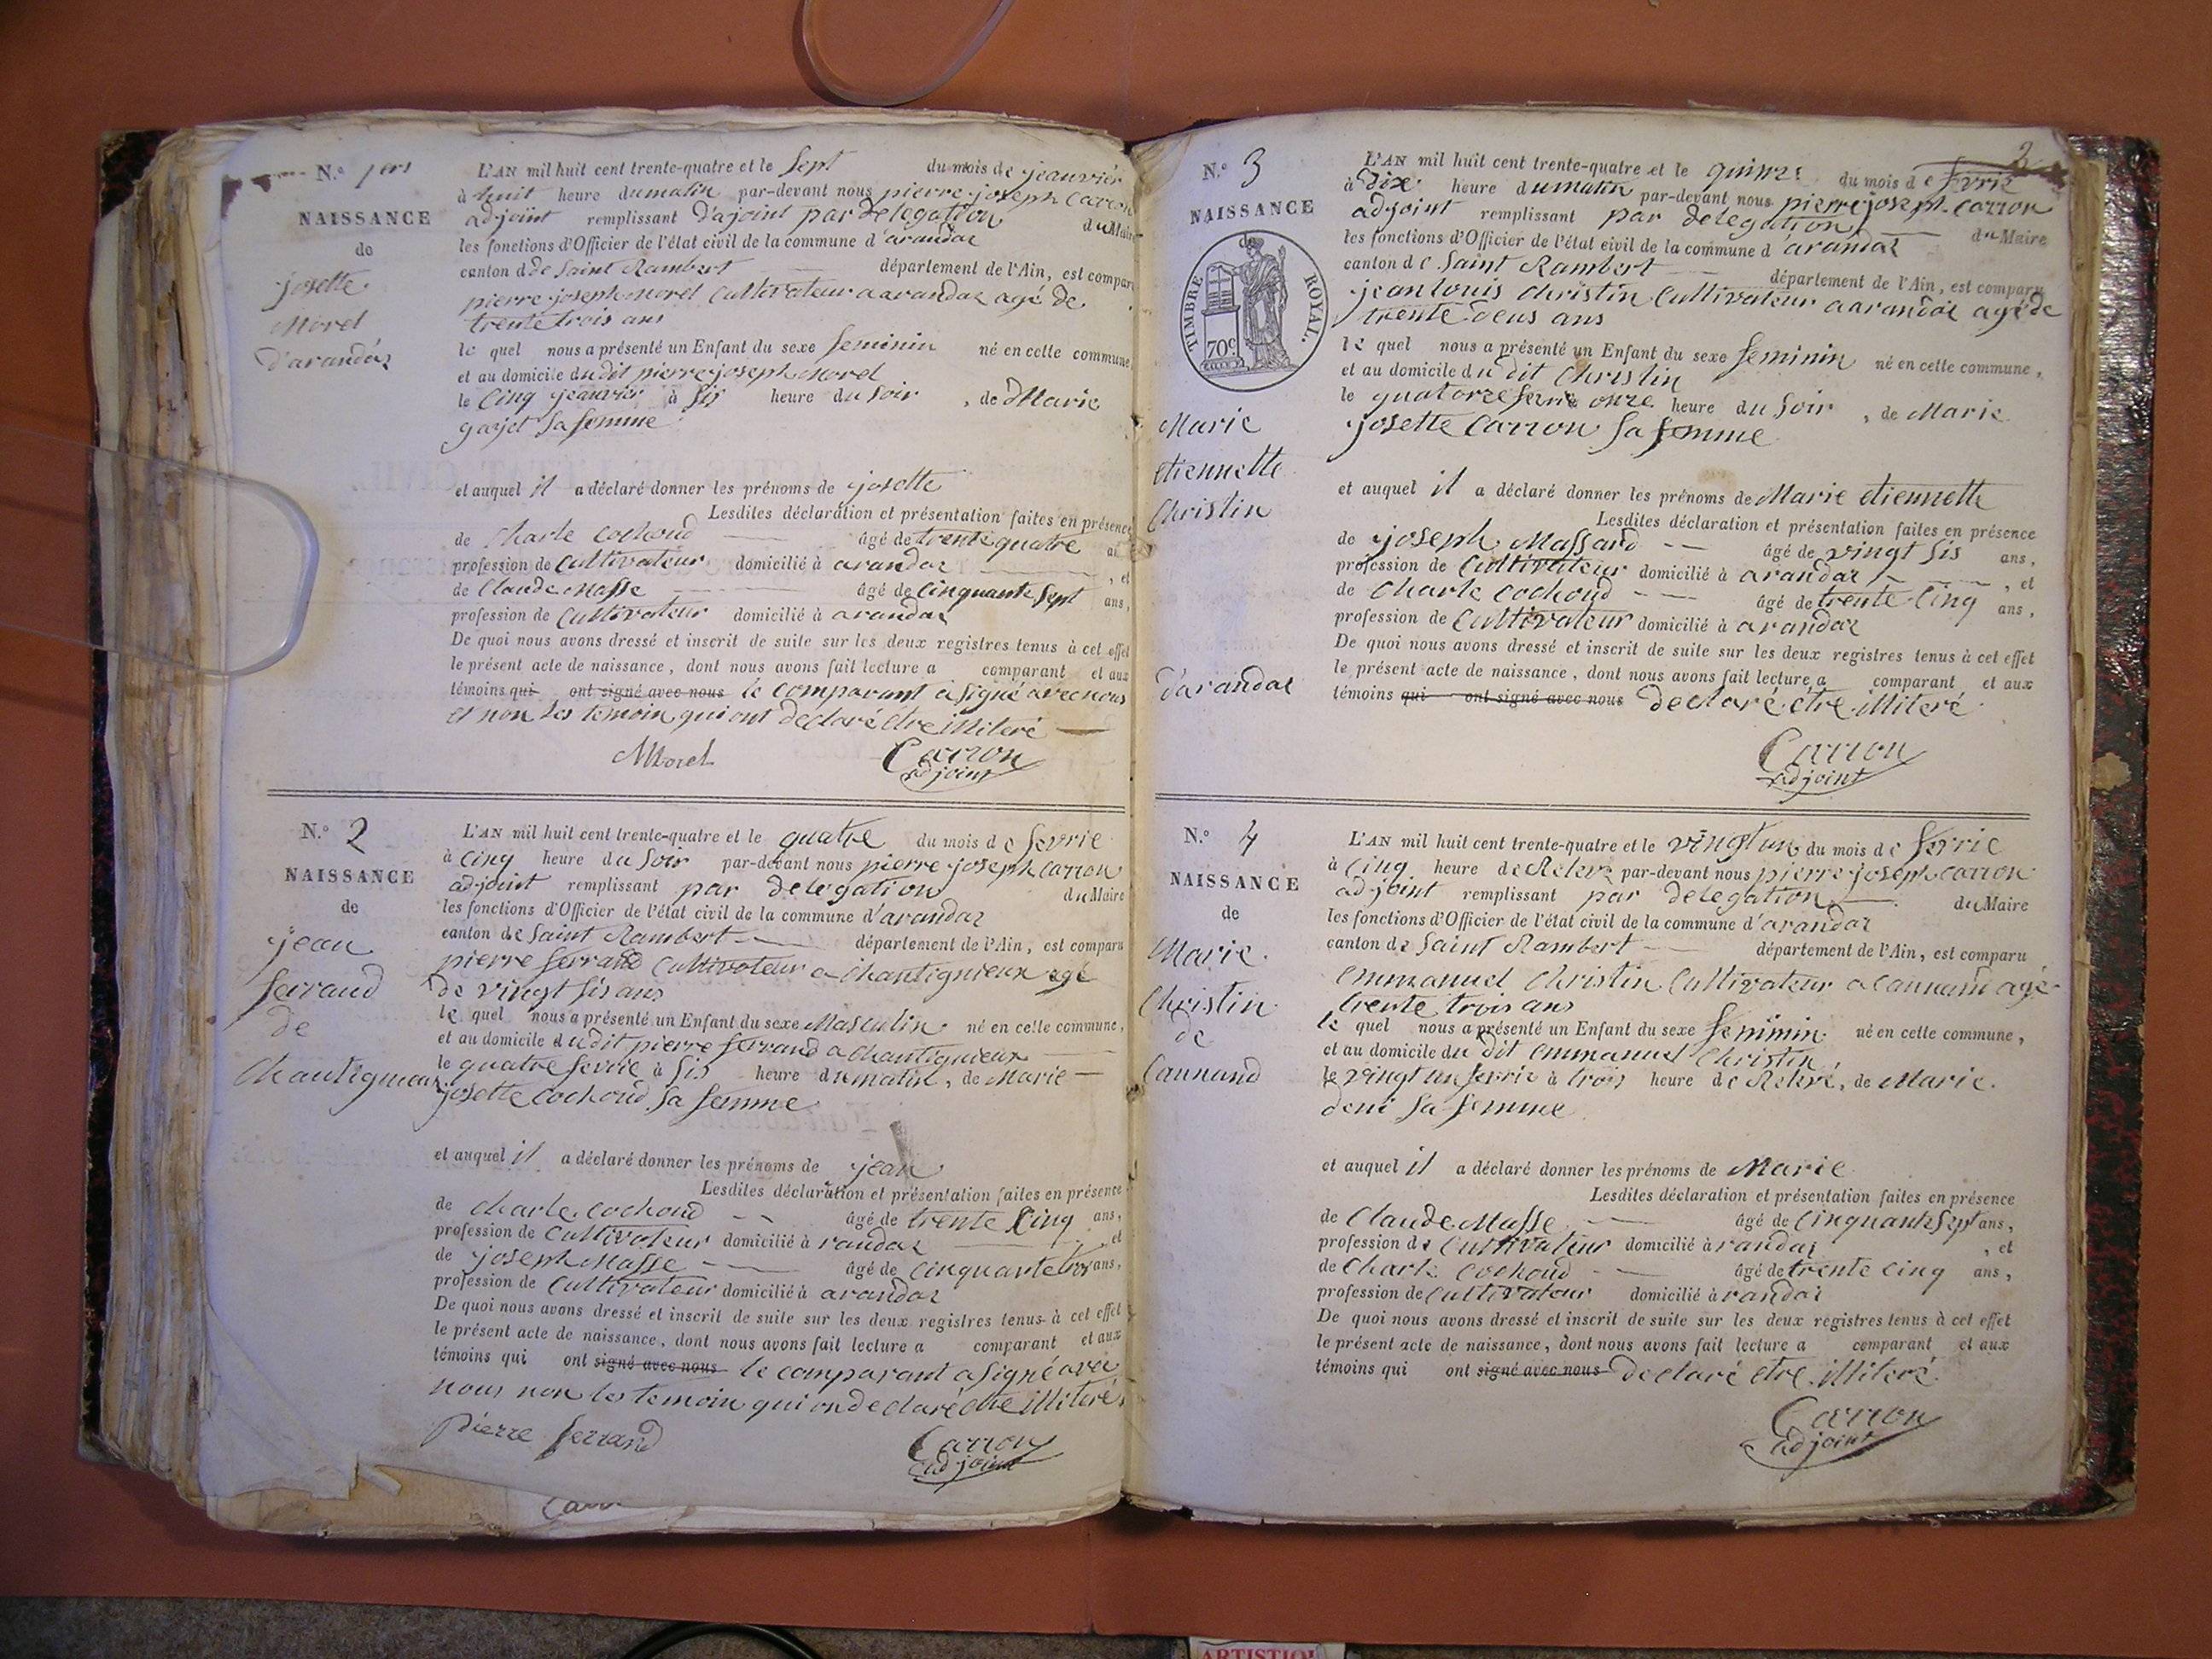 N.o 1ers
NAISSANCE
de
josette
Morel
d'arandaz
L'AN mil huit cent trente-quatre et le Sept du mois de jeanvrier
à huit heure du matin par-devant nous pierre joseph Carron
adjoint remplissant D'ajoint par delegation du Maire
les fonctions d'Officier de l'état civil de la commune d'arandaz
canton d de Saint Rambert département de l'Ain, est comparu
pierre joseph Morel Cultivateur a arandaz agé de
trente trois ans
le quel nous a présenté un Enfant du sexe feminin né en cette commune,
et au domicile du dit pierre joseph Morel
le Cinq jeanvrier à Sis heure du Soir, de Marie
Sa femme
et auquel il a déclaré donner les prénoms de josette
Lesdites déclaration et présentation faites en présence
de Charle Cochoud âgé de trente quatre
profession de Cultivateur domicilié à arandaz, et
de Claude Masse âgé de Cinquante Sept ans,
profession de Cultivateur domicilié à arandaz
De quoi nous avons dressé et inscrit de suite sur les deux registres tenus à cet effet
le présent acte de naissance, dont nous avons fait lecture a comparant et aux
témoins qui ont signé avec nous le comparant a Signé avec nous
et non les temoin qui ont declaré etre illiteré
Morel Carron
adjoint
N.o 2
NAISSANCE
de
jean
ferrand
de
Chantignieux
L'AN mil huit cent trente-quatre et le quatre du mois de fevrie
à Cinq heure du Soir par-devant nous pierre joseph Carron
adjoint remplissant par delegation du Maire
les fonctions d'Officier de l'état civil de la commune d'arandaz
canton de Saint Rambert département de l'Ain, est comparu
pierre ferrand Cultivateur a Chantignieux agé
de vingt Sis ans
le quel nous a présenté un Enfant du sexe Masculin né en cette commune,
et au domicile du dit pierre ferrand a Chantignieux
le quatre fevrie à Sis heure du matin, de Marie
josette Cochoud Sa femme
et auquel il a déclaré donner les prénoms de jean
Lesdites déclaration et présentation faites en présence
de Charle Cochoud âgé de trente Cinq ans,
profession de Cultivateur domicilié à randaz, et
de joseph Masse âgé de Cinquante trois ans,
profession de Cultivateur domicilié à arandaz
De quoi nous avons dressé et inscrit de suite sur les deux registres tenus à cet effet
le présent acte de naissance, dont nous avons fait lecture a comparant et aux
témoins qui ont signé avec nous le comparant a Signé avec
nous non les temoin qui on declaré etre illiteré
pierre ferrand Carron
adjoint
2
N.o 3
NAISSANCE
TIMBRE ROYAL.
70c
Marie
etiennette
Christin
d'arandaz
L'AN mil huit cent trente-quatre et le quinze du mois de fevrie
à Dix heure du matin par-devant nous pierre joseph Carron
adjoint remplissant par delegation du Maire
les fonctions d'Officier de l'état civil de la commune d'arandaz
canton de Saint Rambert département de l'Ain, est comparu
jean louis Christin Cultivateur a arandaz agé de
trente deus ans
le quel nous a présenté un Enfant du sexe feminin né en cette commune,
et au domicile du dit Christin
le quatorze fevrie onze heure du Soir, de Marie
josette Carron Sa femme
et auquel il a déclaré donner les prénoms de Marie etiennette
Lesdites déclaration et présentation faites en présence
de joseph Massard âgé de vingt Sis ans,
profession de Cultivateur domicilié à arandaz, et
de Charle Cochoud âgé de trente Cinq ans,
profession de Cultivateur domicilié à arandaz
De quoi nous avons dressé et inscrit de suite sur les deux registres tenus à cet effet
le présent acte de naissance, dont nous avons fait lecture a comparant et aux
témoins qui ont signé avec nous declaré etre illiteré
Carron
adjoint
N.o 4
NAISSANCE
de
Marie
Christin
de
Cannand
L'AN mil huit cent trente-quatre et le vingt un du mois de fevrie
à Cinq heure de Relevé par-devant nous pierre joseph Carron
adjoint remplissant par delegation du Maire
les fonctions d'Officier de l'état civil de la commune d'arandaz
canton de Saint Rambert département de l'Ain, est comparu
emmanuel Christin Cultivateur a Cannand agé
trente trois ans
le quel nous a présenté un Enfant du sexe feminin né en cette commune,
et au domicile du dit emmanuel Christin
le vingt un fevrie à trois heure de Relevé, de Marie
deni Sa femme
et auquel il a déclaré donner les prénoms de Marie
Lesdites déclaration et présentation faites en présence
de Claude Masse âgé de Cinquante Sept ans,
profession de Cultivateur domicilié à randaz, et
de Charle Cochoud âgé de trente Cinq ans,
profession de Cultivateur domicilié à randaz
De quoi nous avons dressé et inscrit de suite sur les deux registres tenus à cet effet
le présent acte de naissance, dont nous avons fait lecture a comparant et aux
témoins qui ont signé avec nous Declaré etre illiteré
Carron
adjoint